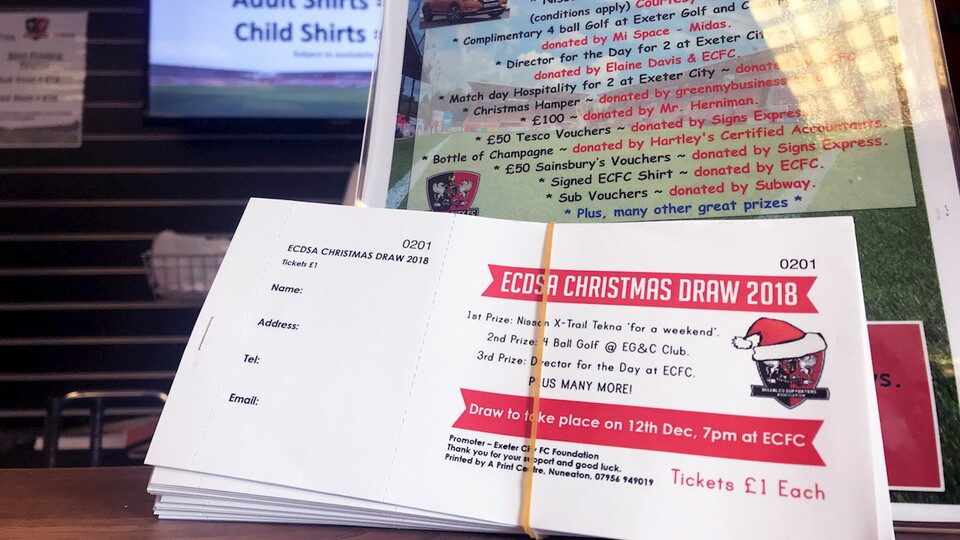 Adult Shirts
Child Shirts
Subject to availability
(conditions apply) Courtesy
* Complimentary 4 ball Golf at Exeter Golf and Country
donated by Mi Space - Midas.
* Director for the Day for 2 at Exeter City ~
donated by Elaine Davis & ECFC.
* Match day Hospitality for 2 at Exeter City ~ donated by ECFC.
* Christmas Hamper ~ donated by greenmybusiness
* £100 ~ donated by Mr. Herniman.
* £50 Tesco Vouchers ~ donated by Signs Express.
* Bottle of Champagne ~ donated by Hartley's Certified Accountants.
* £50 Sainsbury's Vouchers ~ donated by Signs Express.
* Signed ECFC Shirt ~ donated by ECFC.
* Sub Vouchers ~ donated by Subway.
* Plus, many other great prizes *
0201
ECDSA CHRISTMAS DRAW 2018
Tickets £1
Name:
Address:
Tel:
Email:
0201
ECDSA CHRISTMAS DRAW 2018
1st Prize: Nissan X-Trail Tekna 'for a weekend'.
2nd Prize: 4 Ball Golf @ EG&C Club.
3rd Prize: Director for the Day at ECFC.
PLUS MANY MORE!
DISABLED SUPPORTERS
ASSOCIATION
Draw to take place on 12th Dec, 7pm at ECFC
Promoter – Exeter City FC Foundation
Thank you for your support and good luck.
Printed by A Print Centre, Nuneaton, 07956 949019
Tickets £1 Each